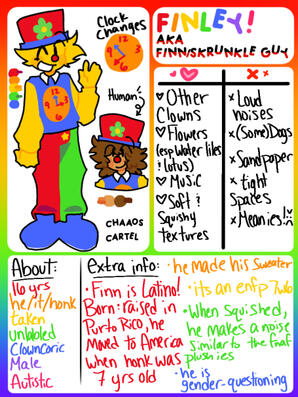 Clock
Changes
12
3
6
9
Human
CHAAOS
CARTEL
FINLEY!
AKA
FINNSKRUNKLE GUY
Other
Clowns
Flowers
(esp Water lilies
& lotus)
Music
Soft &
Squishy
textures
x Loud
noises
x (Some) Dogs
x Sandpaper
x tight
Spaces
x Meanies!!
About:
16 yrs
he/it/honk
taken
unlabled
ClownCoric
Male
Autistic
Extra info:
•Finn is Latino!
Born & raised in
Purto Rico, he
Moved to America
when honk was
7 yrs old
•he made his Sweater
•its an enfp 7w6
•When Squished,
he makes a noise
Similar to the fnaf
plushies
•he is
gender-questioning